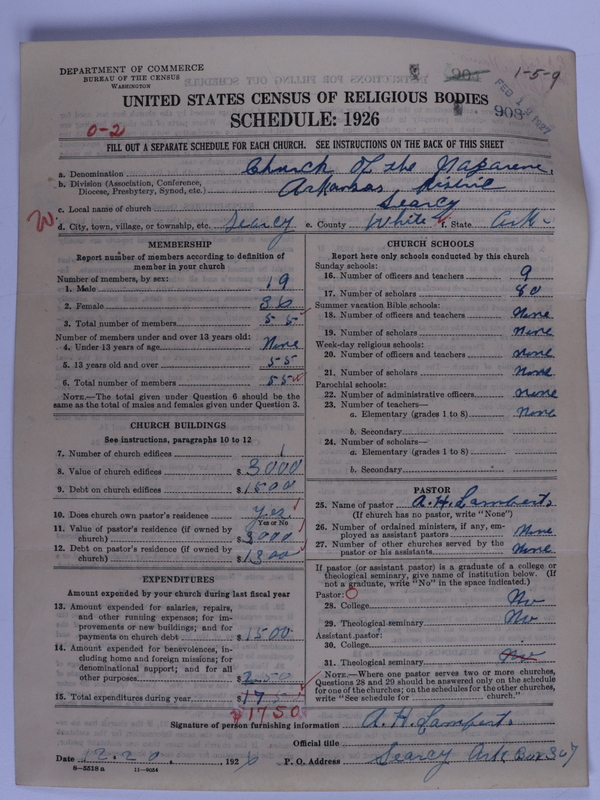 DEPARTMENT OF COMMERCE
BUREAU OF THE CENSUS
WASHINGTON
904
1-5-9
FEB 1 1927
903
UNITED STATES CENSUS OF RELIGIOUS BODIES
SCHEDULE: 1926
0-2
FILL OUT A SEPARATE SCHEDULE FOR EACH CHURCH. SEE INSTRUCTIONS ON THE BACK OF THIS SHEET
a. Denomination Church Of the Nazarene,
b. Division (Association, Conference, Diocese, Presbytery, Synod, etc.) Arkansas District
c. Local name of church Searcy
W.
d. City, town, village, or township, etc. Searcy e. County White f. State Ark-
MEMBERSHIP
Report number of members according to definition of member in your church
Number of members, by sex:
1. Male 19
2. Female 36
3. Total number of members 55
Number of members under and over 13 years old:
4. Under 13 years of age None
5. 13 years old and over 55
6. Total number of members 55
NOTE.—The total given under Question 6 should be the same as the total of males and females given under Question 3.
CHURCH BUILDINGS
See instructions, paragraphs 10 to 12
7. Number of church edifices 1
8. Value of church edifices $3000
9. Debt on church edifices $1500
10. Does church own pastor's residence yes
Yes or No
11. Value of pastor's residence (if owned by church) $3000
12. Debt on pastor's residence (if owned by church) $1300
EXPENDITURES
Amount expended by your church during last fiscal year
13. Amount expended for salaries, repairs, and other running expenses; for improvements or new buildings; and for payments on church debt $1500
14. Amount expended for benevolences, including home and foreign missions; for denominational support; and for all other purposes $250
15. Total expenditures during year $17
$1750
CHURCH SCHOOLS
Report here only schools conducted by this church
Sunday schools:
16. Number of officers and teachers 9
17. Number of scholars 80
Summer vacation Bible schools:
18. Number of officers and teachers None
19. Number of scholars None
Week-day religious schools:
20. Number of officers and teachers None
21. Number of scholars None
Parochial schools:
22. Number of administrative officers None
23. Number of teachers—
a. Elementary (grades 1 to 8) None
b. Secondary
24. Number of scholars—
a. Elementary (grades 1 to 8)
b. Secondary
PASTOR
25. Name of pastor A.H. Lamberts
(If church has no pastor, write "None")
26. Number of ordained ministers, if any, employed as assistant pastors None
27. Number of other churches served by the pastor or his assistants None
If pastor (or assistant pastor) is a graduate of a college or theological seminary, give name of institution below. (If not a graduate, write "No" in the space indicated.)
Pastor:
28. College No
29. Theological seminary No
Assistant pastor:
30. College
31. Theological seminary No
NOTE.—Where one pastor serves two or more churches, Questions 28 and 29 should be answered only on the schedule for one of the churches; on the schedules for the other churches, write "See schedule for church."
Signature of person furnishing information A.H. Lamberts
Official title
Date 12.20. 1926 P. O. Address Searcy Ark Box 307
8—5518 a 11—9034